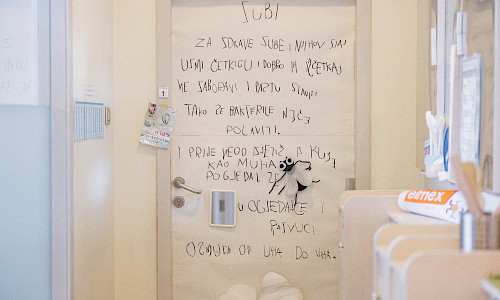 ZUBI
ZA ZDRAVE ZUBE I NJIHOV SJAJ
UZMI ČETKICU I DOBRO IH ČETKAJ
NE ZABORAVI I PASTU STAVI
TAKO ĆE BAKTERIJE NJIĆE
POLAVITI.
I PRIJE NEGO
KAO MUHA
POGLEDAJ SE
U OGLEDALCE I
RAZVUCI
OSMIJEH OD UHA DO UHA.
1
elmex